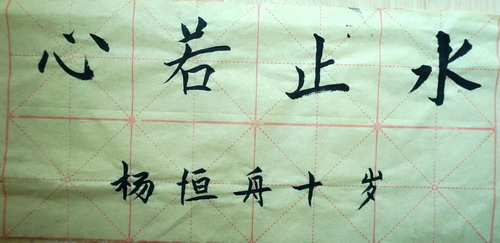 心若止水
杨恒舟十岁